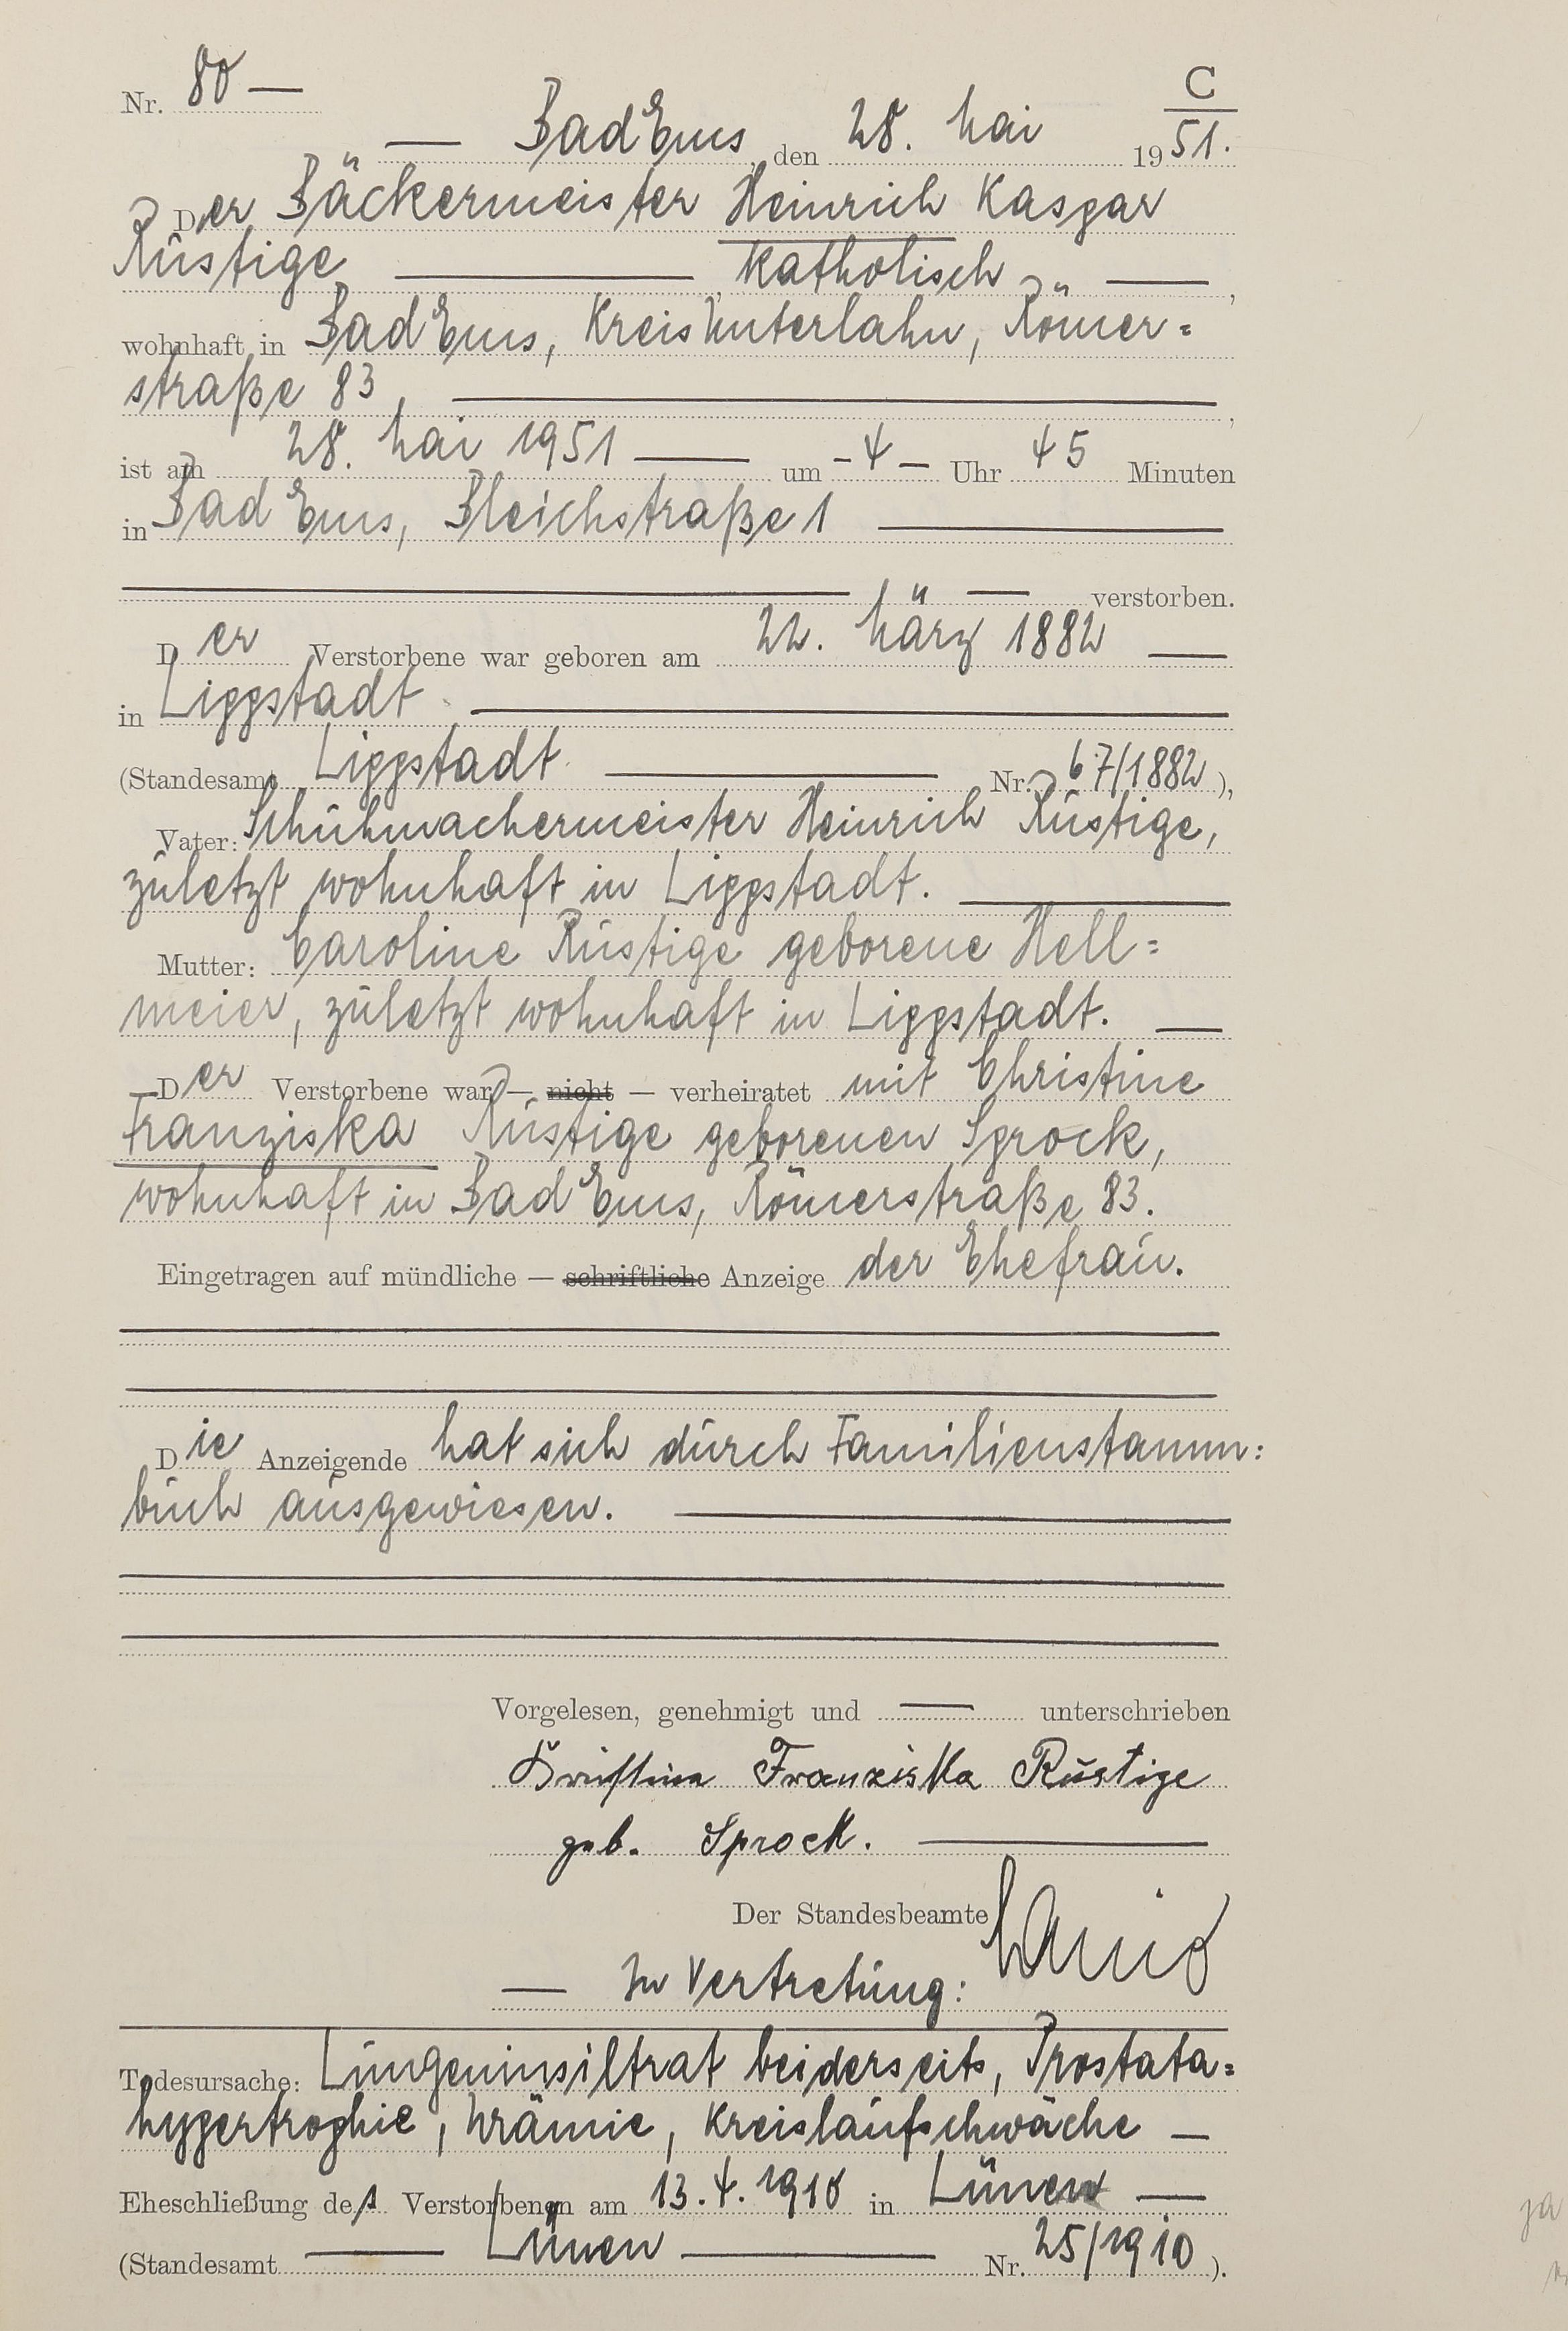 Nr. 80 —
C
— Bad Ems, den 28. Mai 1951.
Der Bäckermeister Heinrich Kaspar
Rüstige —, katholisch —,
wohnhaft in Bad Ems, Kreis Unterlahn, Römer=
straße 83, —,
ist am 28. Mai 1951 — um - 4 - Uhr 45 Minuten
in Bad Ems, Bleichstraße 1 —
— verstorben.
Der Verstorbene war geboren am 22. März 1882 —
in Lippstadt —
(Standesamt Lippstadt — Nr. 67/1882),
Vater: Schuhmachermeister Heinrich Rüstige,
zuletzt wohnhaft in Lippstadt. —
Mutter: Caroline Rüstige geborene Hell=
meier, zuletzt wohnhaft in Lippstadt. —
Der Verstorbene war — nicht — verheiratet mit Christine
Franziska Rüstige geborenen Sprock,
wohnhaft in Bad Ems, Römerstraße 83.
Eingetragen auf mündliche — schriftliche Anzeige der Ehefrau.
Die Anzeigende hat sich durch Familienstamm=
buch ausgewiesen. —
Vorgelesen, genehmigt und — unterschrieben
Franziska Rüstige
geb. Sprock. —
Der Standesbeamte
— In Vertretung:
Todesursache: Lungeninfiltrat beiderseits, Prostata=
hypertrophie, Urämie, Kreislaufschwäche —
Eheschließung des Verstorbenen am 13.4.1910 in Lünen —
(Standesamt — Lünen — Nr. 25/1910).
ja